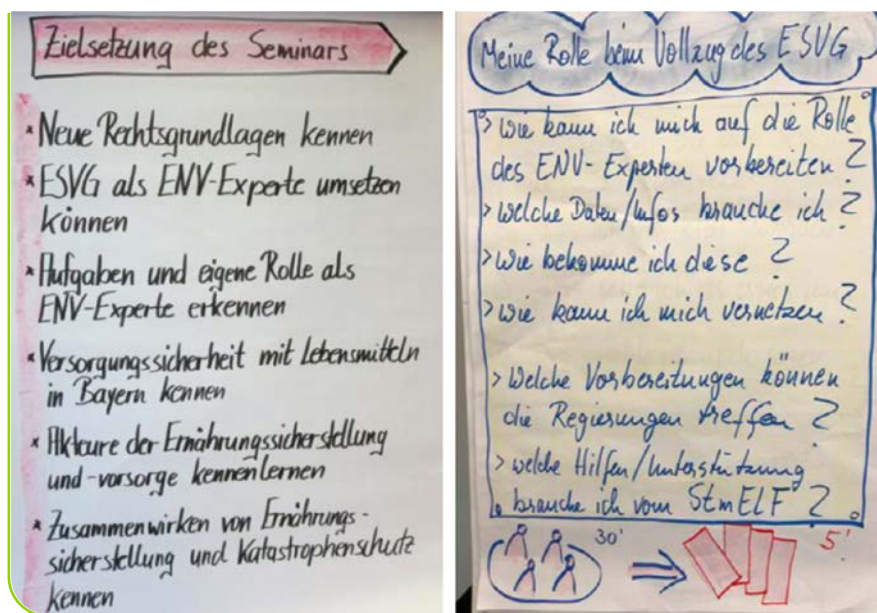 Zielsetzung des Seminars
* Neue Rechtsgrundlagen kennen
* ESVG als ENV-Experte umsetzen
können
* Aufgaben und eigene Rolle als
ENV-Experte erkennen
* Versorgungssicherheit mit Lebensmitteln
in Bayern kennen
* Akteure der Ernährungssicherstellung
und -vorsorge kennenlernen
* Zusammenwirken von Ernährungs-
sicherstellung und Katastrophenschutz
kennen
Meine Rolle beim Vollzug des ESVG
> wie kann ich mich auf die Rolle
des ENV-Experten vorbereiten?
> welche Daten/Infos brauche ich?
> wie bekomme ich diese?
> wie kann ich mich vernetzen?
> Welche Vorbereitungen können
die Regierungen treffen?
> welche Hilfen/Unterstützung
brauche ich vom StmELF?
30'
5'